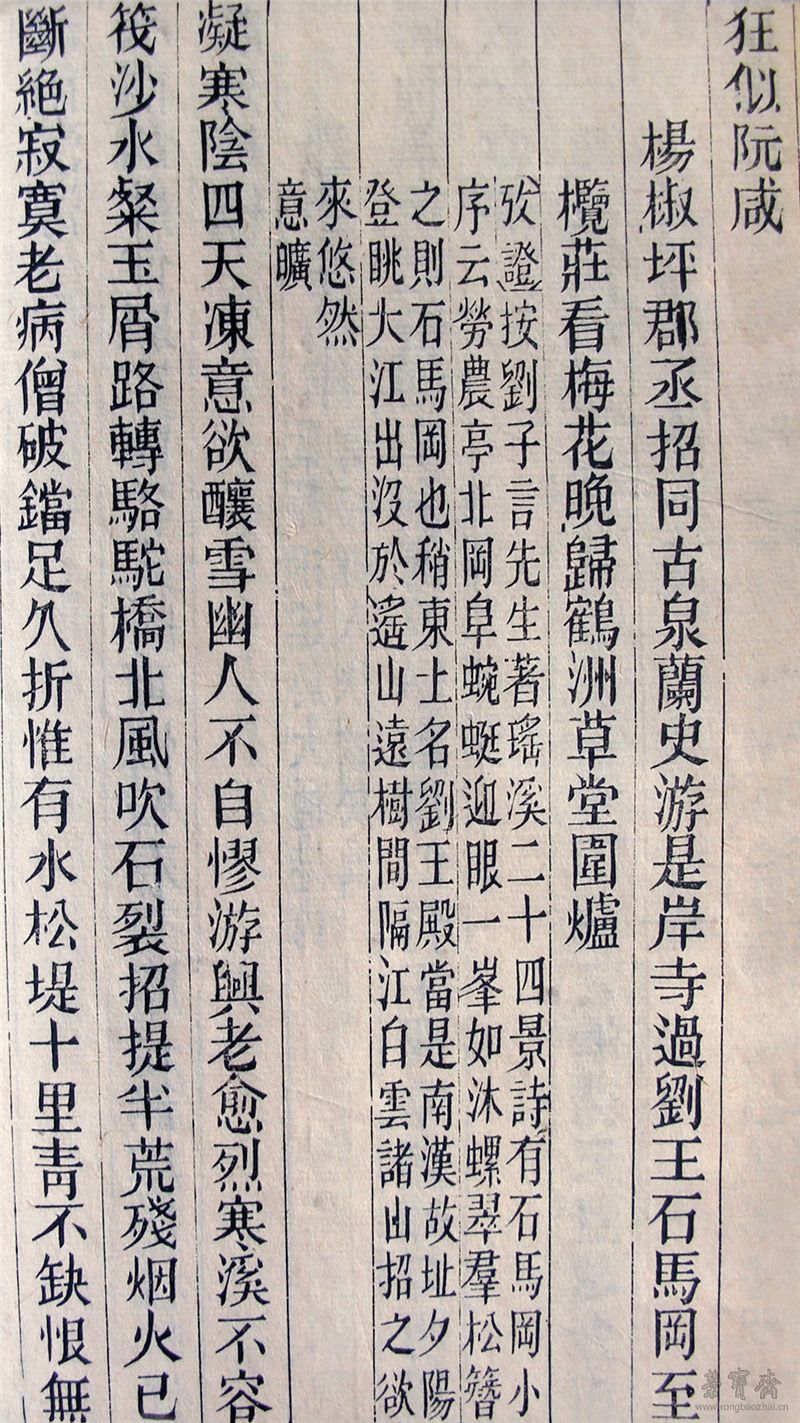 狂似阮咸
楊椒坪郡丞招同古泉蘭史游是岸寺過劉王石馬岡至
欖莊看梅花晚歸鶴洲草堂圍爐
攷證按劉子言先生著瑤溪二十四景詩有石馬岡小
序云勞農亭北岡阜蜿蜒迎眼一峯如沐螺翠羣松簪
之則石馬岡也稍東土名劉王殿當是南漢故址夕陽
登眺大江出沒於遙山遠樹間隔江白雲諸山招之欲
來悠然
意曠
凝寒陰四天凍意欲釀雪幽人不自憀游興老愈烈寒溪不容
筏沙水粲玉屑路轉駱駝橋北風吹石裂招提半荒殘烟火已
斷絕寂寞老病僧破鐺足久折惟有水松堤十里靑不缺恨無
榮寶齋
www.rongbaozhai.cn